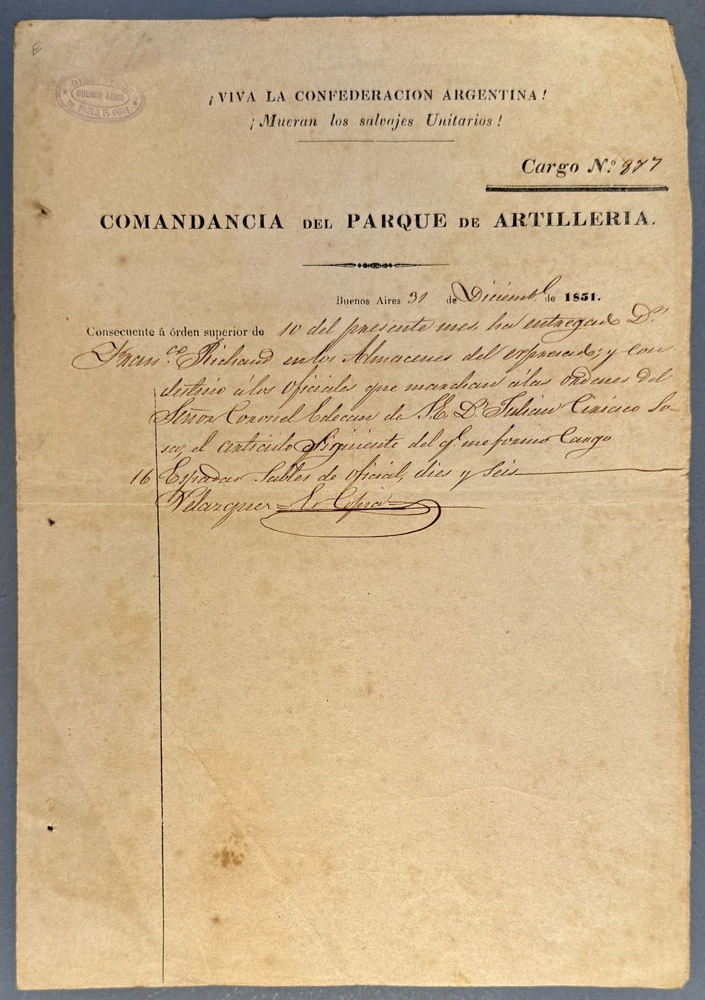 BUENOS AIRES
¡VIVA LA CONFEDERACION ARGENTINA!
¡Mueran los salvajes Unitarios!
Cargo N.º 877
COMANDANCIA DEL PARQUE DE ARTILLERIA.
Buenos Aires 31 de Diciemb.e de 1851.
Consecuente á órden superior de 10 del presente mes, ha entregado Dn.
Fran.co Richaud en los Almacenes del expresado; y con
destino á los Oficiales que marchan á las ordenes del
Señor Coronel Edecan de S.E. Dn. Julian Ciriaco So-
sa, el articulo siguiente del q.e me formo Cargo
16 Espadas Sables de oficial, dies y seis
Velazquez - Es Copia -